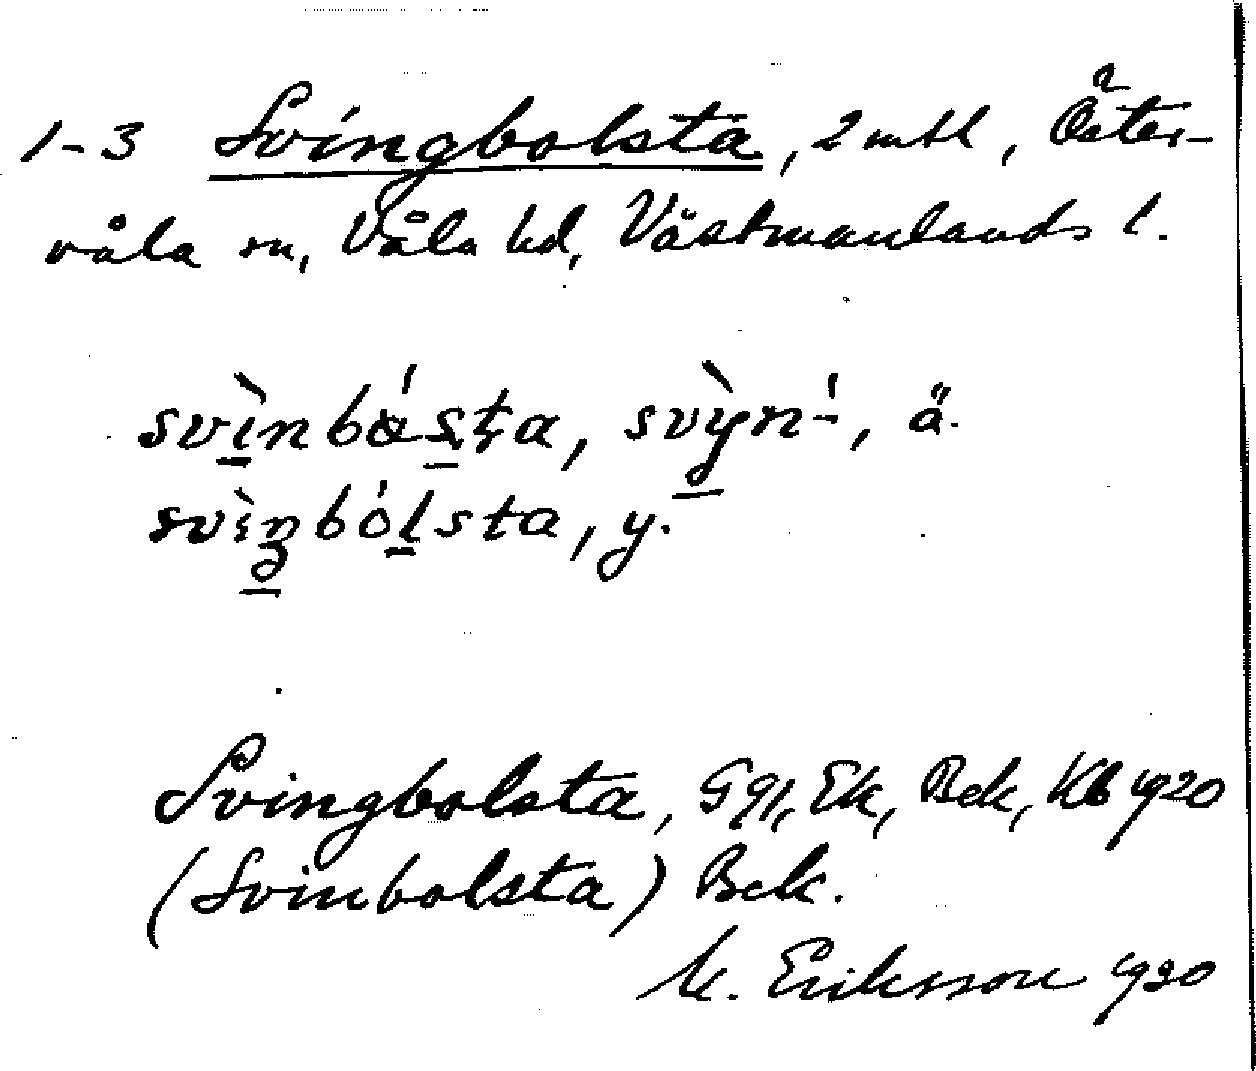 1-3 Svingbolsta, 2 mtl, Öster-
våla sn, Våla hd, Västmanlands l.
svìnbó̀sta, svỳn-́, ä.
svìŋbólsta, y.
Svingbolsta, Gql, Ek, Bek, Kb 1920
(Svinbolsta) Bek.
M. Eriksson 1930